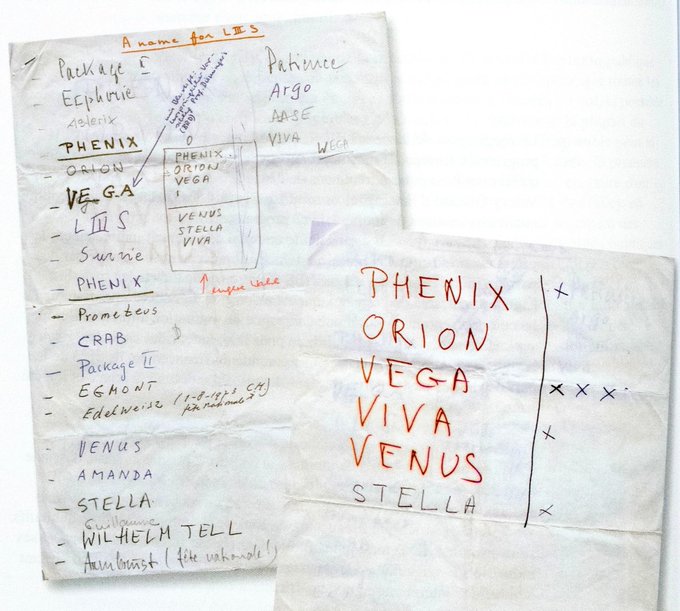 A name for L III S
- Package I
- Ecphorie
- Asterix
- PHENIX
- ORION
- VEGA
- L III S
- Survie
- PHENIX
- Prometeus
- CRAB
- Package II
- EGMONT
- Edelweiss (1-8-1973 CH)
fête nationale
- VENUS
- AMANDA
- STELLA
Guillaume
- WILHELM TELL
- Armbrust (fête nationale!)
Patience
Argo
AASE
VIVA
WEGA
PHENIX
ORION
VEGA
VENUS
STELLA
VIVA
engere Wahl
PHENIX x
ORION
VEGA x x x
VIVA x
VENUS
STELLA x